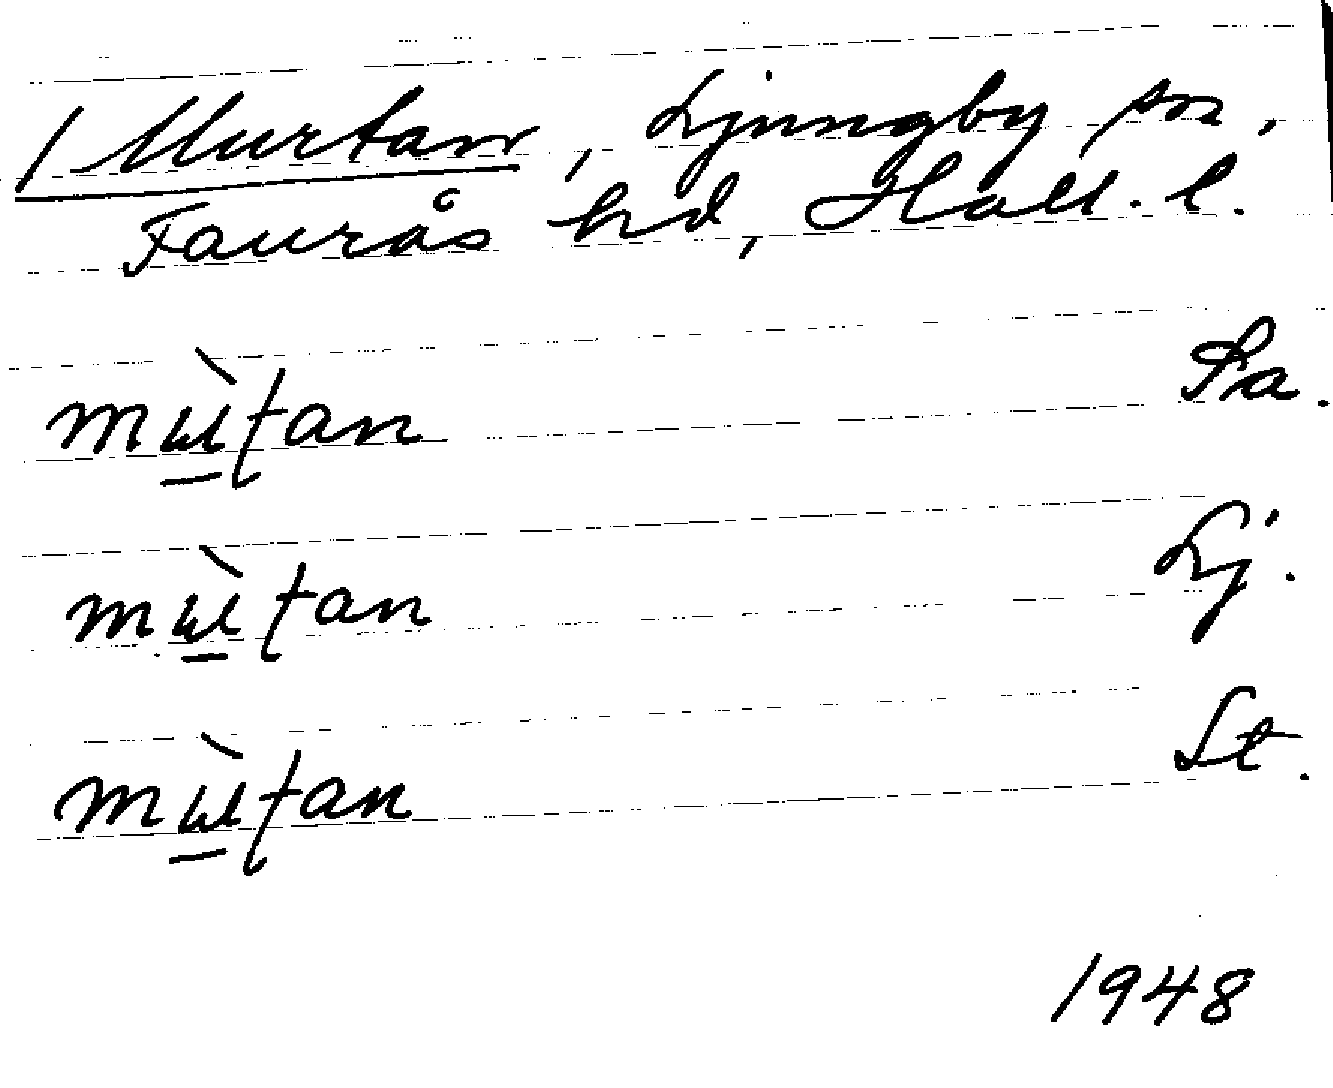 / Murtan, Ljungby sn,
Faurås hd, Hall. l.
mɯ̱̀ʈan Sa.
mɯ̱̀ʈan Lj.
mɯ̱̀ʈan St.
1948